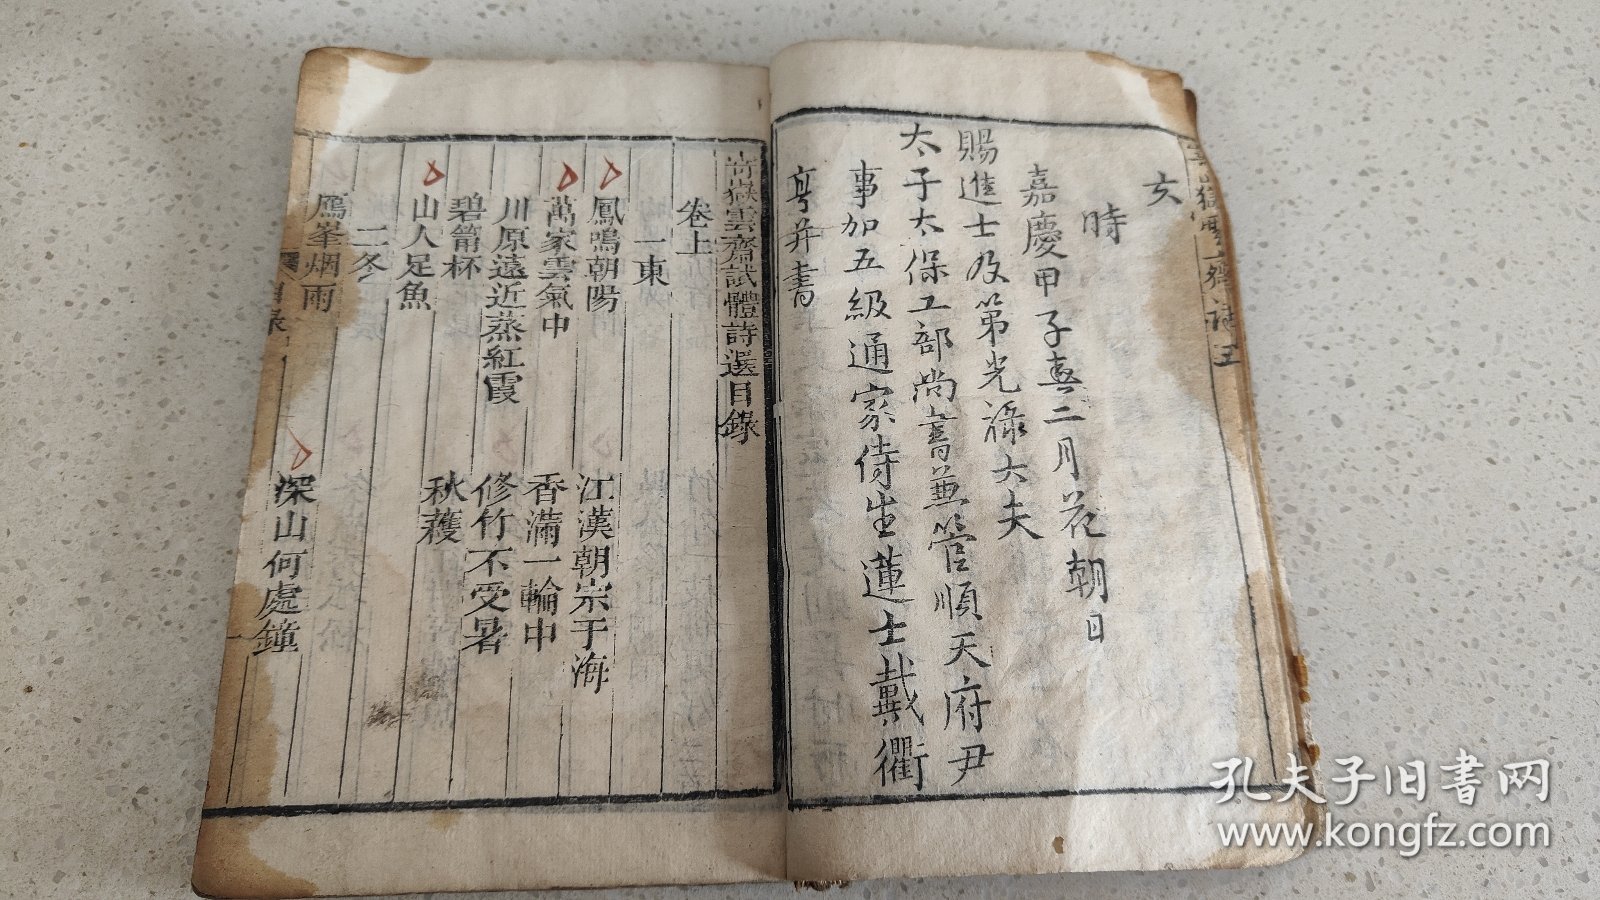 文
時
嘉慶甲子春二月花朝日
賜進士及第光祿大夫
太子太保工部尚書兼管順天府尹
事加五級通家侍生蓮士戴衢
亨并書
嶽雲齋試體詩選目錄
卷上
一東
鳳鳴朝陽
江漢朝宗于海
萬家雲氣中
香滿一輪中
川原遠近蒸紅霞
修竹不受暑
碧筩杯
秋穫
山人足魚
二冬
雁峯烟雨
深山何處鐘
孔夫子旧书网
www.kongfz.com